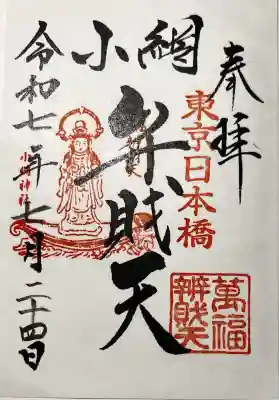 奉拝
東京日本橋
小網
弁財天
萬福
辨財天
令和七年七月二十四日
小網神社